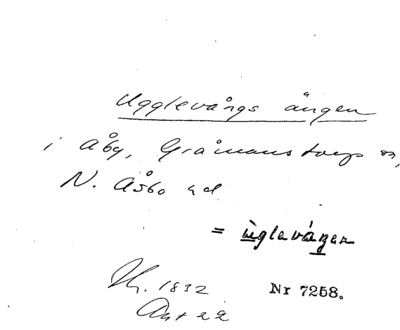 Ugglevångs ängen
i Åby, Gråmanstorps sn,
N. Åsbo hd
= ùglevåŋen
1832
Nr 7258.